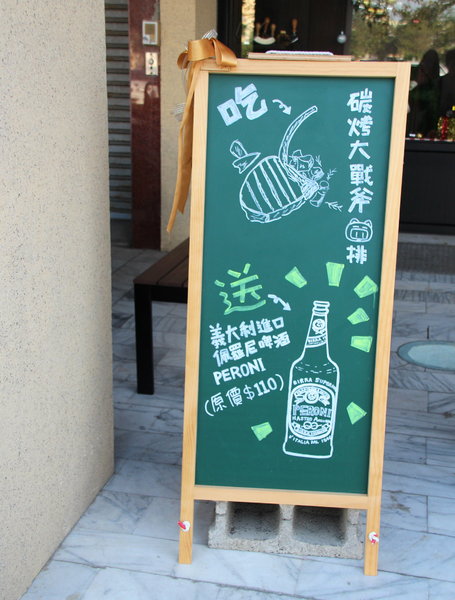 吃
碳烤大戰斧排
送
義大利進口
佩羅尼啤酒
PERONI
(原價$110)
BIRRA SUPERIOR
PERONI
NASTRO AZZURRO